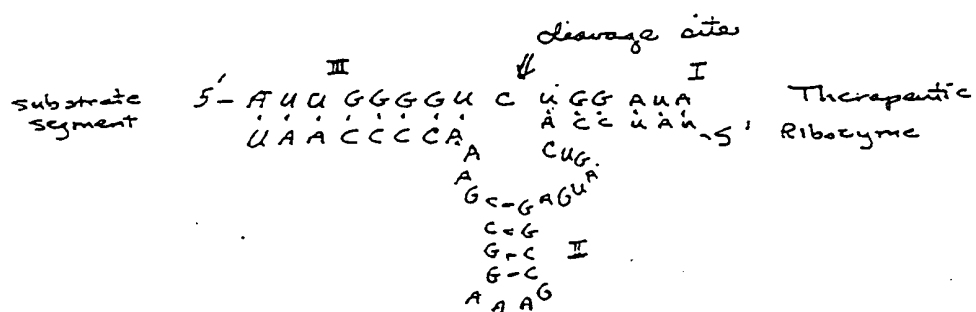 cleavage site
III
I
substrate segment
5'- A U U G G G G U C U G G A U A
Therapeutic Ribozyme
U A A C C C C A
A C C U A U -5'
A
C U G
A
A
G C - G A G U
C - G
G - C
II
G - C
A A A G